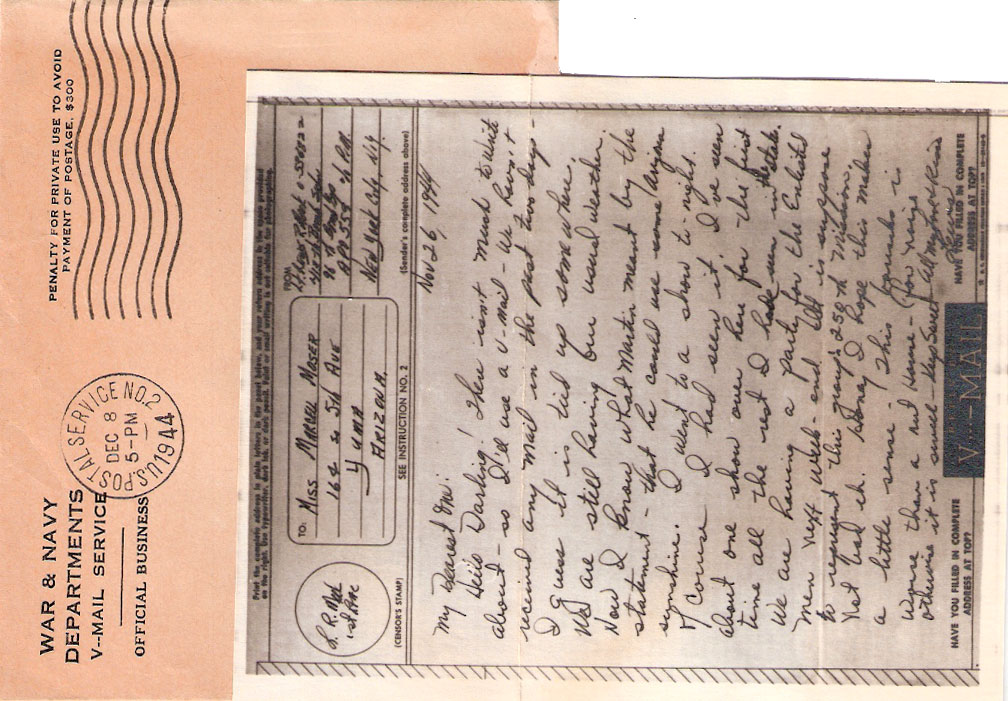 WAR & NAVY
DEPARTMENTS
V--MAIL SERVICE
OFFICIAL BUSINESS
U.S. POSTAL SERVICE NO. 2
DEC 8
5-PM
1944
PENALTY FOR PRIVATE USE TO AVOID
PAYMENT OF POSTAGE, $300
Print the complete address in plain letters in the panel below, and your return address in the space provided
on the right. Use typewriter, dark ink, or dark pencil. Faint or small writing is not suitable for photographing.
(CENSOR'S STAMP)
TO:
MISS MARY MOSER
168 So 5th AVE
YUMA
ARIZONA
SEE INSTRUCTION NO. 2
FROM
APO 557 % P.M.
New York City N.Y.
(Sender's complete address above)
Nov 26, 1944
My Dearest One:
Hello Darling! There isn't much to write
about - so I'll use a v-mail - We haven't
received any mail in the past two days -
I guess it is tied up some where.
We are still having our usual weather.
Now I know what Martin meant by the
statement - that he could use some Arizona
synshine. I went to a show to night.
Of course I had seen it. I've seen
about one show over here for the first
time all the rest I had seen in the states.
We are having a party for the Enlisted
men next week-end. It is suppose
to represent this group's 250th mission.
Not bad eh. Honey I hope this makes
a little sense - This squads is
worse than a nut House - (Four nuts
otherwise it is swell - keep Sweet All my love & kisses
HAVE YOU FILLED IN COMPLETE
ADDRESS AT TOP?
V···-MAIL
HAVE YOU FILLED IN COMPLETE
ADDRESS AT TOP?